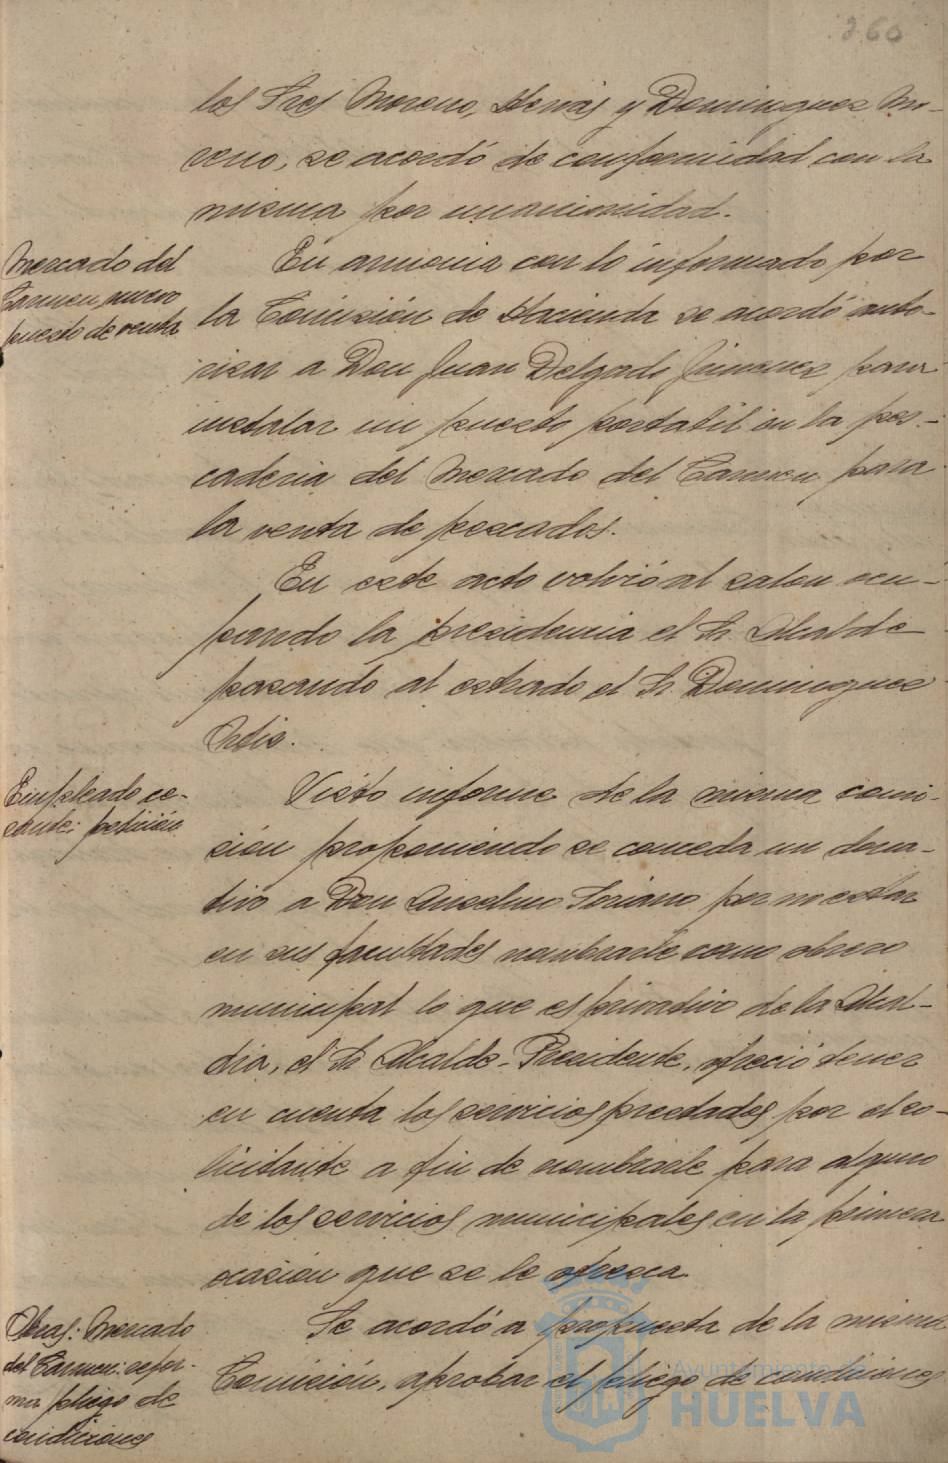 260
los Sres Moreno, Henis y Dominguez Mo-
reno, se acordó de conformidad con la
misma por unanimidad.
Mercado del
Carmen, nuevo
puesto de venta
En armonia con lo informado por
la Comisión de Hacienda se acordó auto-
rizar a Don Juan Delgado Jimenez para
instalar un puesto portatil en la pes-
caderia del Mercado del Carmen para
la venta de pescados.
En este acto volvió al salon ocu-
pando la presidencia el Sr. Alcalde
pasando al estrado el Sr. Dominguez
Ortiz.
Empleado ce-
sante: petición
Visto informe de la misma comi-
sión proponiendo se conceda un dona-
tivo a Don Anselmo Soriano por no estar
en sus facultades nombrarle como obrero
municipal lo que es privativo de la Alcal-
dia, el Sr. Alcalde-Presidente, ofreció tener
en cuenta los servicios prestados por el so-
licitante a fin de nombrarle para alguno
de los servicios municipales en la primera
ocasión que se le ofrezca.
Obras: Mercado
del Carmen: refor-
ma pliego de
condiciones
Se acordó a propuesta de la misma
Comisión, aprobar el pliego de condiciones
Ayuntamiento de
HUELVA